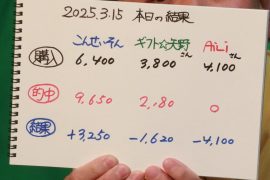 2025.3.15 本日の結果
こんせいそん ギフト☆矢野さん AiLiさん
購入 6,400 3,800 4,100
的中 9,650 2,180 0
結果 +3,250 -1,620 -4,100